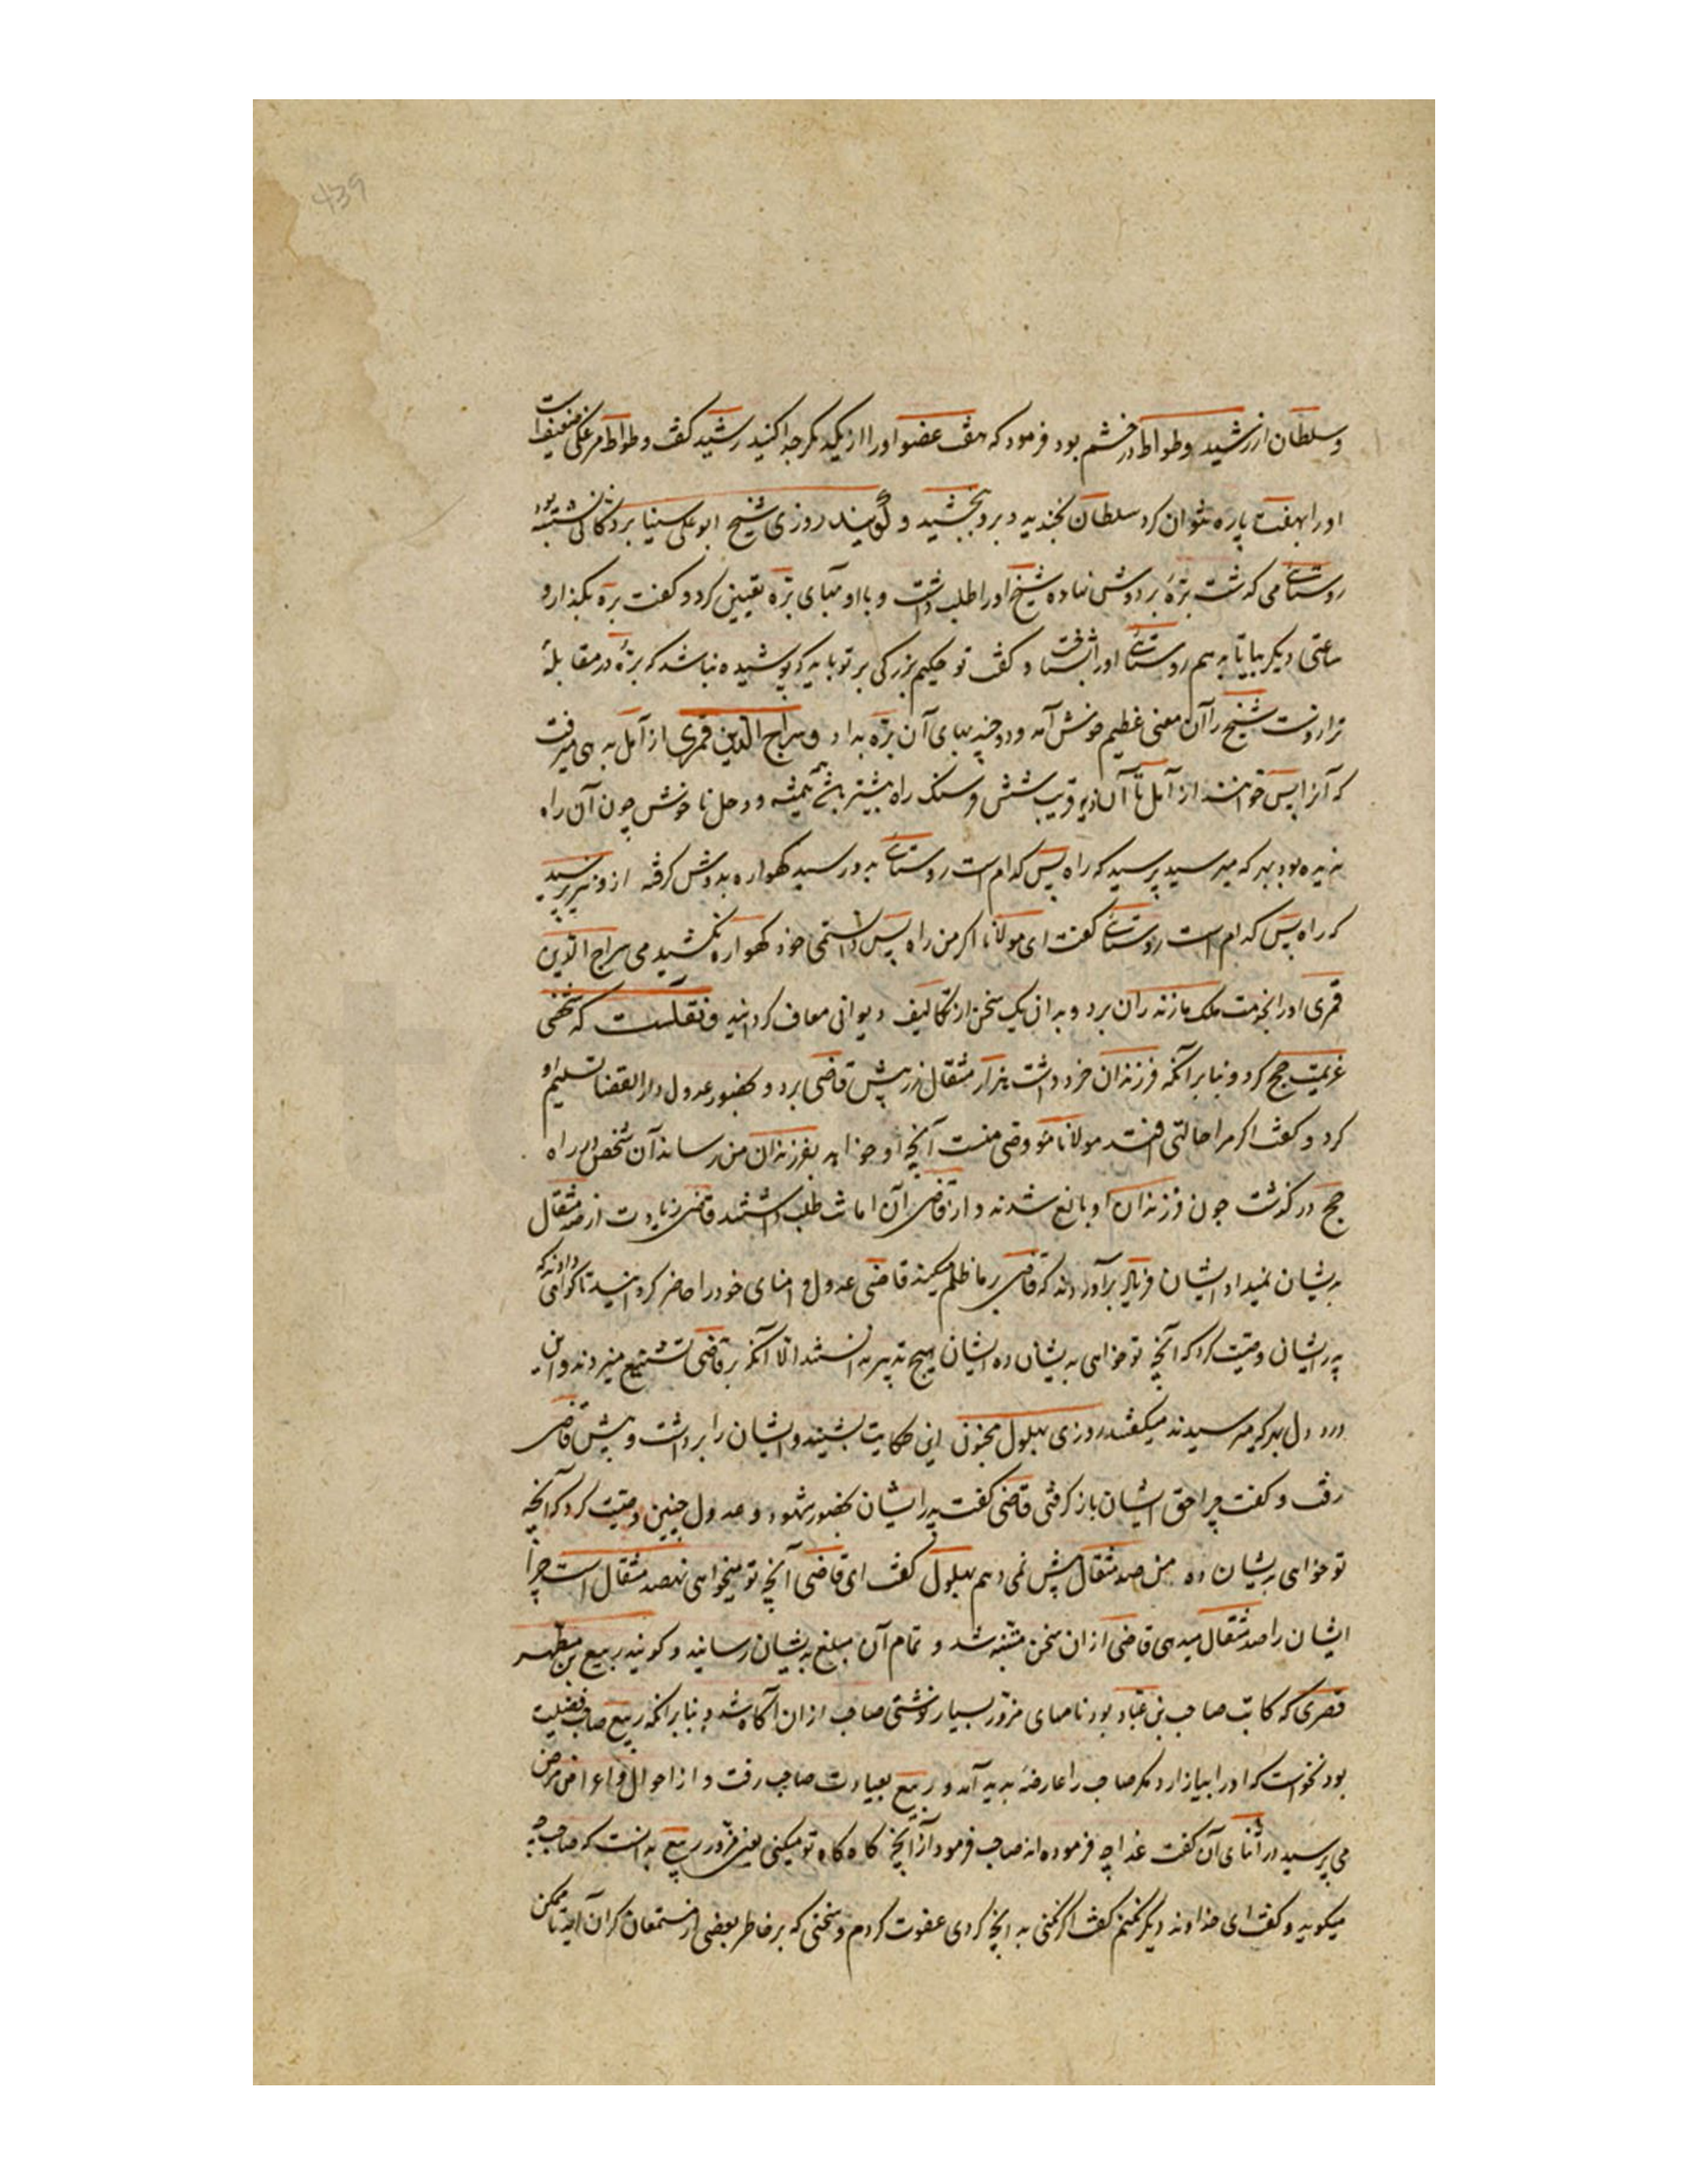 وسلطان از رشید وطواط در خشم بود فرمود که هفت عضو اورا از یکدیکر جدا کنید رشید کفت وطواط مرغکی ضعیفست
اورا بهفت پاره نتوان کرد سلطان بخندید و برو بخشید و کویند روزی شیخ ابوعلی سینا بر دکانی نشسته بود
روستائی می کذشت بره بر دوش نهاده شیخ اورا طلب داشت و با او بهای بره تعیین کرد و کفت بره بکذار و
ساعتی دیکر بیا تا بدهم روستائی اورا شناخت و کفت تو حکیم بزرکی بر تو باید که پوشیده نباشد که بره در مقابلهٔ
ترازوست شیخ را آن معنی عظیم خوش آمد و دوچند بهای آن بره بداد وسراج الدین قمری از آمل بدهی میرفت
که آنرا پس خوانند از آمل تا آن دیه قریب شش فرسنک راه بیشتر باشد بیشه و وحل ناخوش چون آن راه
ندیده بود بهر که میرسید پرسید که راه پس کدام است روستائی بدو رسید کهواره بدوش کرفته ازو نیز پرسید
که راه پس کدام است روستائی کفت ای مولانا اکر من راه پس داشتمی خود کهواره نکشیدمی سراج الدین
قمری اورا بخدمت ملک مازندران برد و بدان یک سخن از تکالیف دیوانی معاف کردانید ونقلست که شخصی
عزیمت حج کرد و بنابر آنکه فرزندان خرد داشت هزار مثقال زر پیش قاضی برد و بحضور عدول دار القضا تسلیم او
کرد و کفت اکر مرا حالتی افتد مولانا وصی منست آنچه او خواهد بفرزندان من رساند آن شخص در راه
حج در کذشت چون فرزندان او بالغ شدند و از قاضی آن امانت طلب داشتند قاضی زیادت از صد مثقال
بدیشان نمیداد ایشان فریاد برآوردند که قاضی بر ما ظلم میکند قاضی عدول و امنای خود را حاضر کردانید تا کواهی دادند که
پدر ایشان وصیت کرد که آنچه تو خواهی بدیشان ده ایشان هیچ تدبیر ندانستند الا آنکه بر قاضی تشنیع میزدند و این
درد دل بهر که میرسیدند میکفتند روزی بهلول مجنون این حکایت بشنید و ایشان را برداشت و پیش قاضی
رفت و کفت چرا حق ایشان باز کرفتی قاضی کفت پدر ایشان بحضور شهود و عدول چنین وصیت کرد که آنچه
تو خواهی بدیشان ده من صد مثقال بیش نمی دهم بهلول کفت ای قاضی آنچه تو میخواهی نهصد مثقال است چرا
ایشان را صد مثقال میدهی قاضی ازان سخن متنبه شد و تمام آن مبلغ بدیشان رسانید و کویند ربیع بن مطهر
قصری که کاتب صاحب بن عباد بود نامهای مزور بسیار نوشتی صاحب ازان آکاه شد و بنابر آنکه ربیع صاحب فضیلت
بود نخواست که اورا بیازارد مکر صاحب را عارضهٔ پدید آمد و ربیع بعیادت صاحب رفت و از احوال و اعراض مرض
می پرسید در اثنای آن کفت غذا چه فرموده اند صاحب فرمود از آنچه کاه کاه تو میکنی یعنی مزور ربیع بدانست که صاحب چه
میکوید و کفت ای خداوند دیکر نکنم کفت اکر نکنی بدانچه کردی عفوت کردم و سخنی که بر خاطر بعضی از مستمعان کران آید تا ممکن